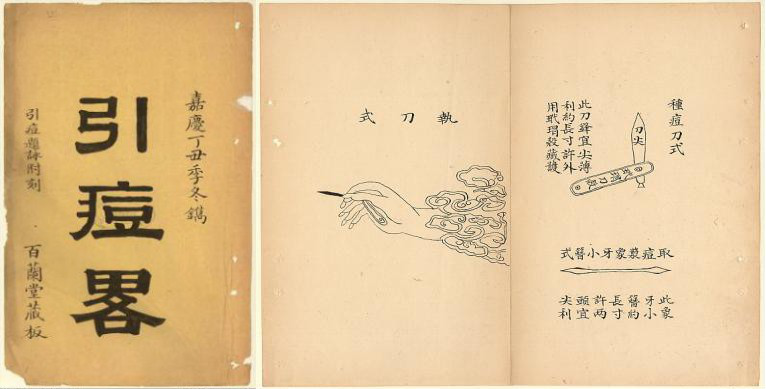 嘉慶丁丑季冬鐫
引痘畧
引痘題詠附刻
百蘭堂藏板
種痘刀式
刀尖
此刀鋒宜尖薄
利約長寸許外
用玳瑁殼藏護
取痘漿象牙小簪式
此象
牙小
簪約
長寸
許两
頭宜
尖利
執刀式